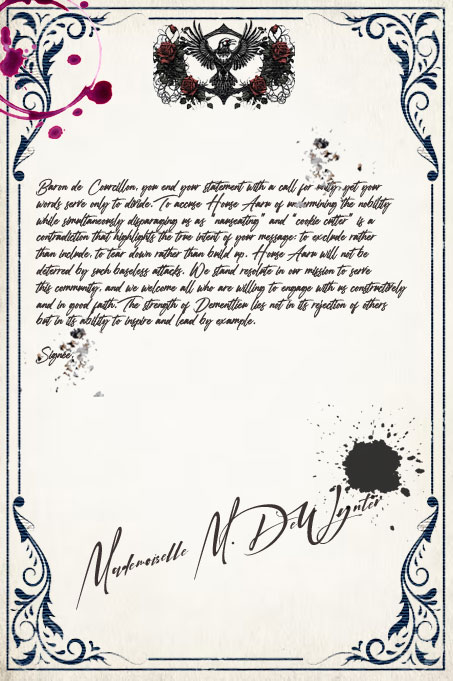 Baron de Courcillon, you end your statement with a call for unity, yet your
words serve only to divide. To accuse House Aarn of undermining the nobility
while simultaneously disparaging us as "nauseating" and "cookie cutter" is a
contradiction that highlights the true intent of your message: to exclude rather
than include, to tear down rather than build up. House Aarn will not be
deterred by such baseless attacks. We stand resolute in our mission to serve
this community, and we welcome all who are willing to engage with us constructively
and in good faith. The strength of Dementlieu lies not in its rejection of others
but in its ability to inspire and lead by example.
Signée,
Mademoiselle M. DeWynter